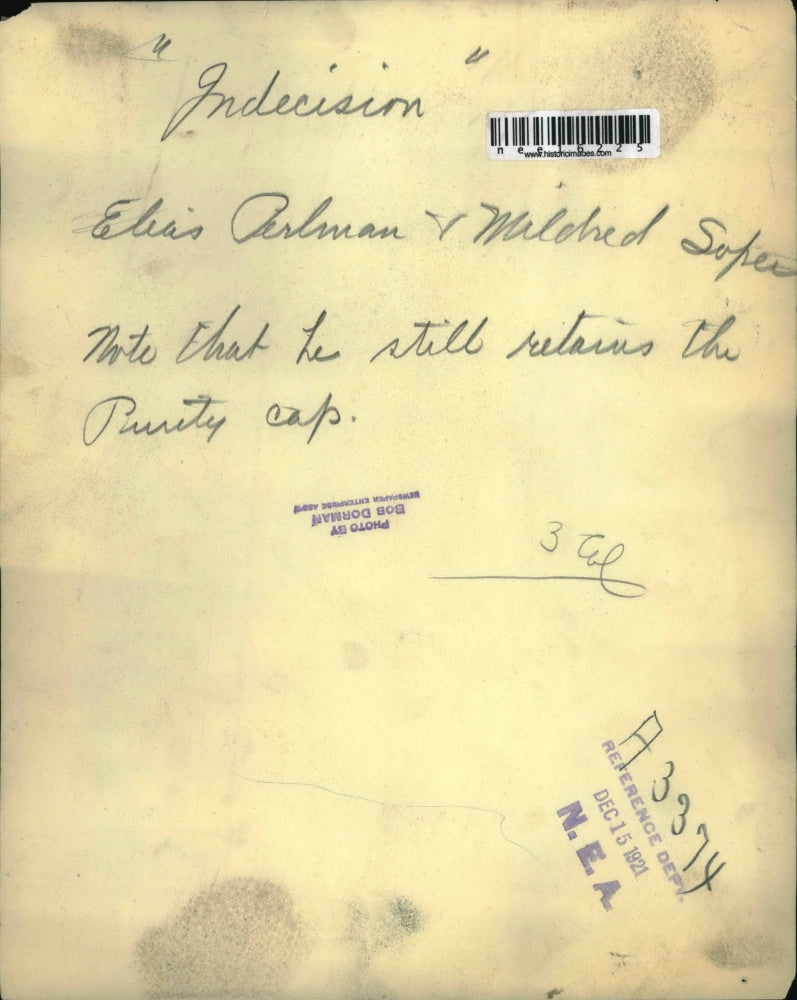 " Indecision "
nee16225
www.historicimages.com
Elias Perlman & Mildred Soper
Note that he still retains the
Purity cap.
PHOTO BY
BOB DORMAN
NEWSPAPER ENTERPRISE ASS'N
3 Col
A3374
REFERENCE DEPT.
DEC 15 1921
N. E. A.